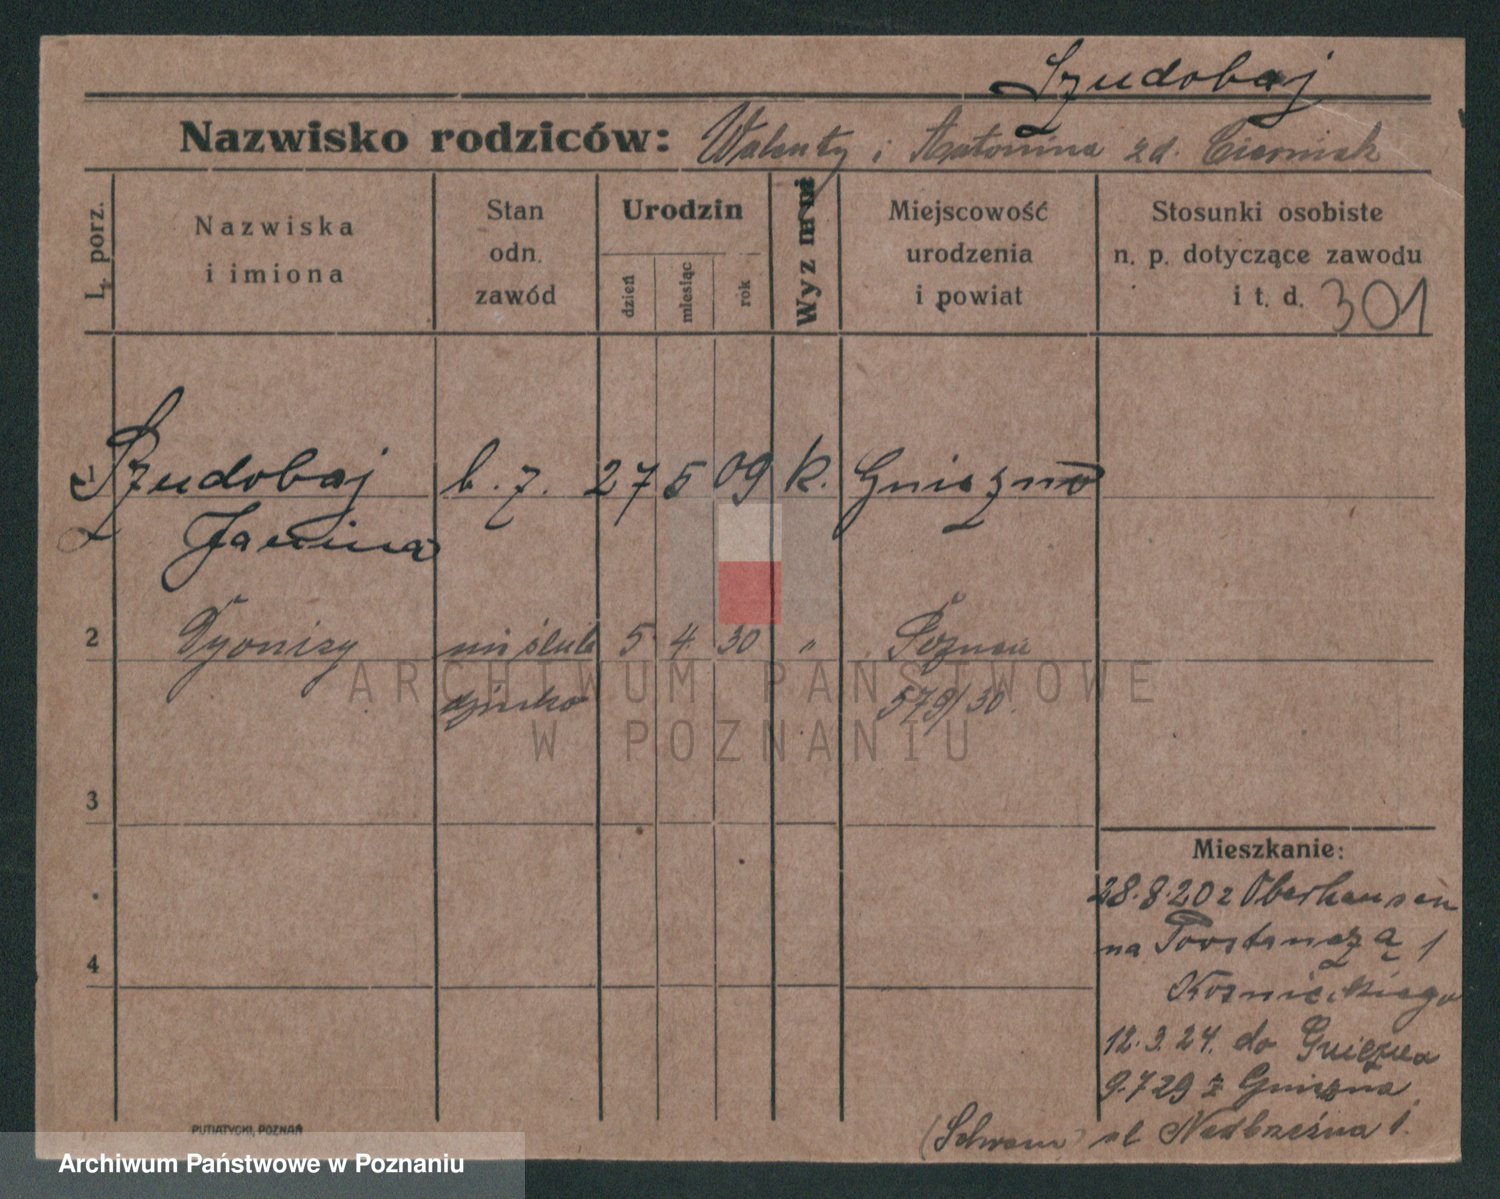 Szudobaj
Nazwisko rodziców: Walenty i Antonina zd. Cierniak
L. porz.
Nazwiska
i imiona
Stan
odn.
zawód
Urodzin
dzień
miesiąc
rok
Wyznanie
Miejscowość
urodzenia
i powiat
Stosunki osobiste
n. p. dotyczące zawodu
i t. d. 301
1 Szudobaj b. z. 27 5 09 k. Gniezno
Janina
2 Dyonizy 5 4 30 " Poznań
579/30.
3
4
Mieszkanie:
28.8.20 z Oberhausen
na Powstańczą 1
12.3.24. do Gniezna
9.7 29 z Gniezna
ul Nadbrzeżna 1.
PUTIATYCKI, POZNAŃ
ARCHIWUM PAŃSTWOWE
W POZNANIU
Archiwum Państwowe w Poznaniu